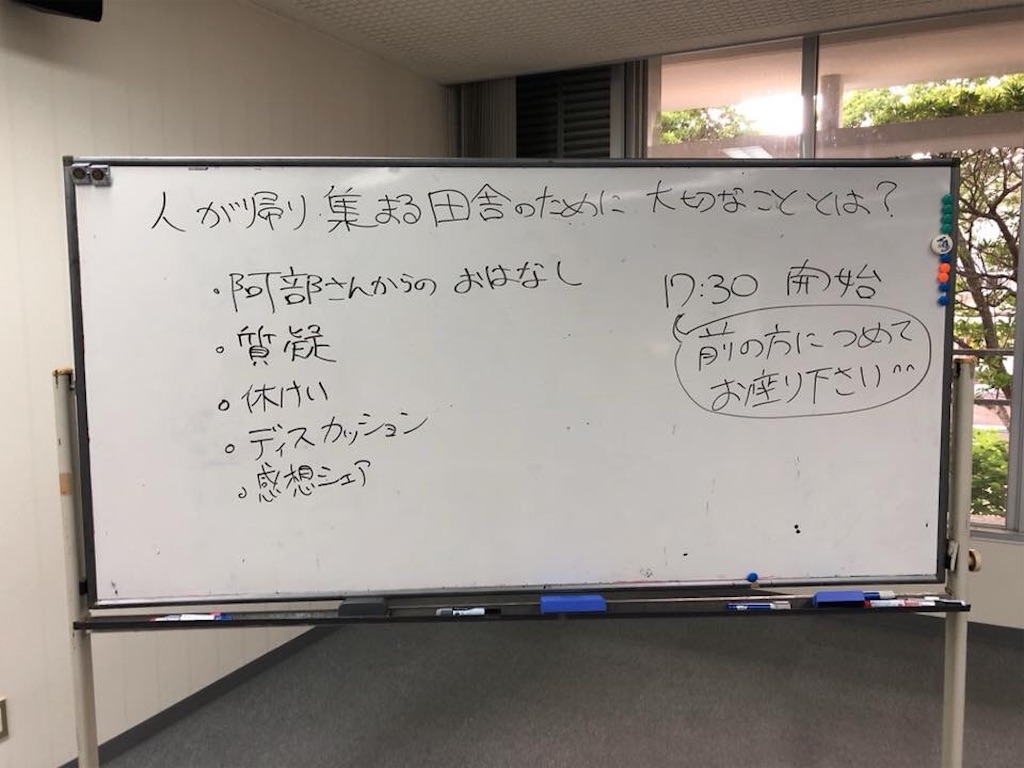 人が帰り集まる田舎のために大切なこととは?
・阿部さんからのおはなし
。質疑
。休けい
。ディスカッション
。感想シェア
17:30 開始
前の方につめて
お座り下さい^^